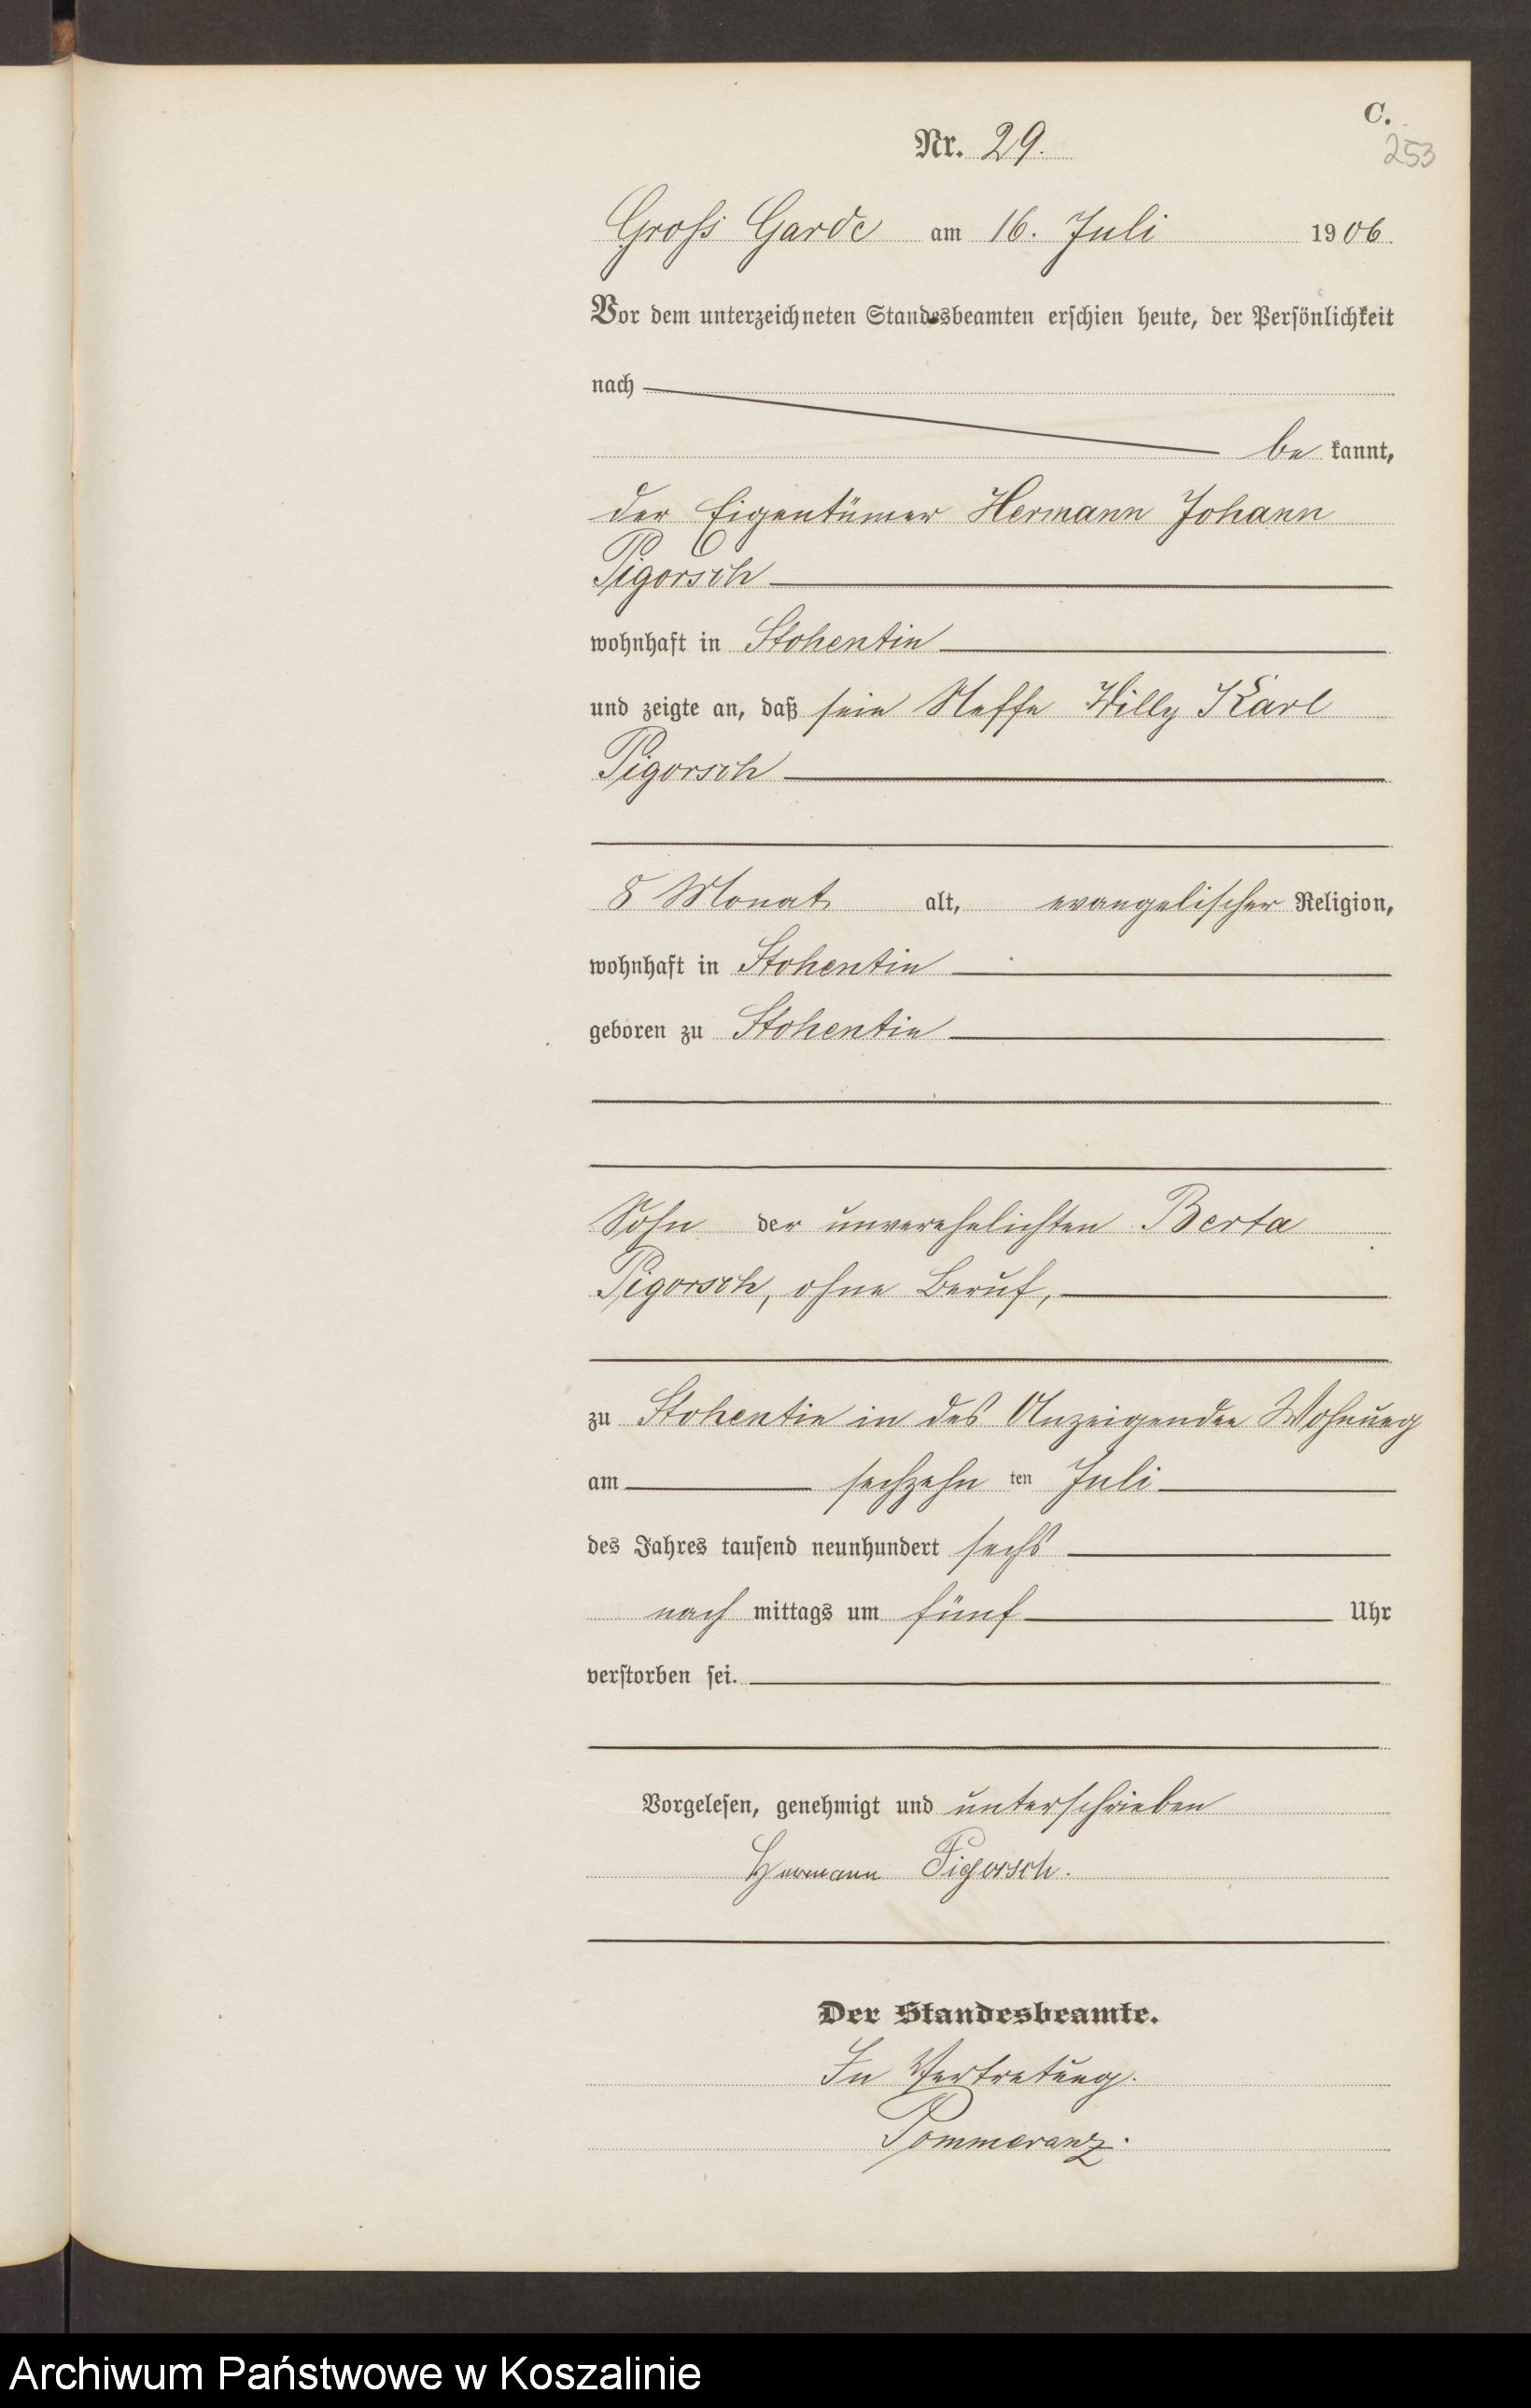 C.
Nr. 29.
253
Gross Garde am 16. Juli 1906.
Vor dem unterzeichneten Standesbeamten erschien heute, der Persönlichkeit
nach
be kannt,
der Eigentümer Hermann Johann
Pigorsch
wohnhaft in Stohentin
und zeigte an, daß sein Neffe Willy Karl
Pigorsch
8 Monat alt, evangelischer Religion,
wohnhaft in Stohentin
geboren zu Stohentin
Sohn der unverehelichten Berta
Pigorsch, ohne Beruf,
zu Stohentin in des Anzeigenden Wohnung
am sechzehn ten Juli
des Jahres tausend neunhundert sechs
nach mittags um fünf Uhr
verstorben sei.
Vorgelesen, genehmigt und unterschrieben
Hermann Pigorsch.
Der Standesbeamte.
In Vertretung.
Pommeranz.
Archiwum Państwowe w Koszalinie